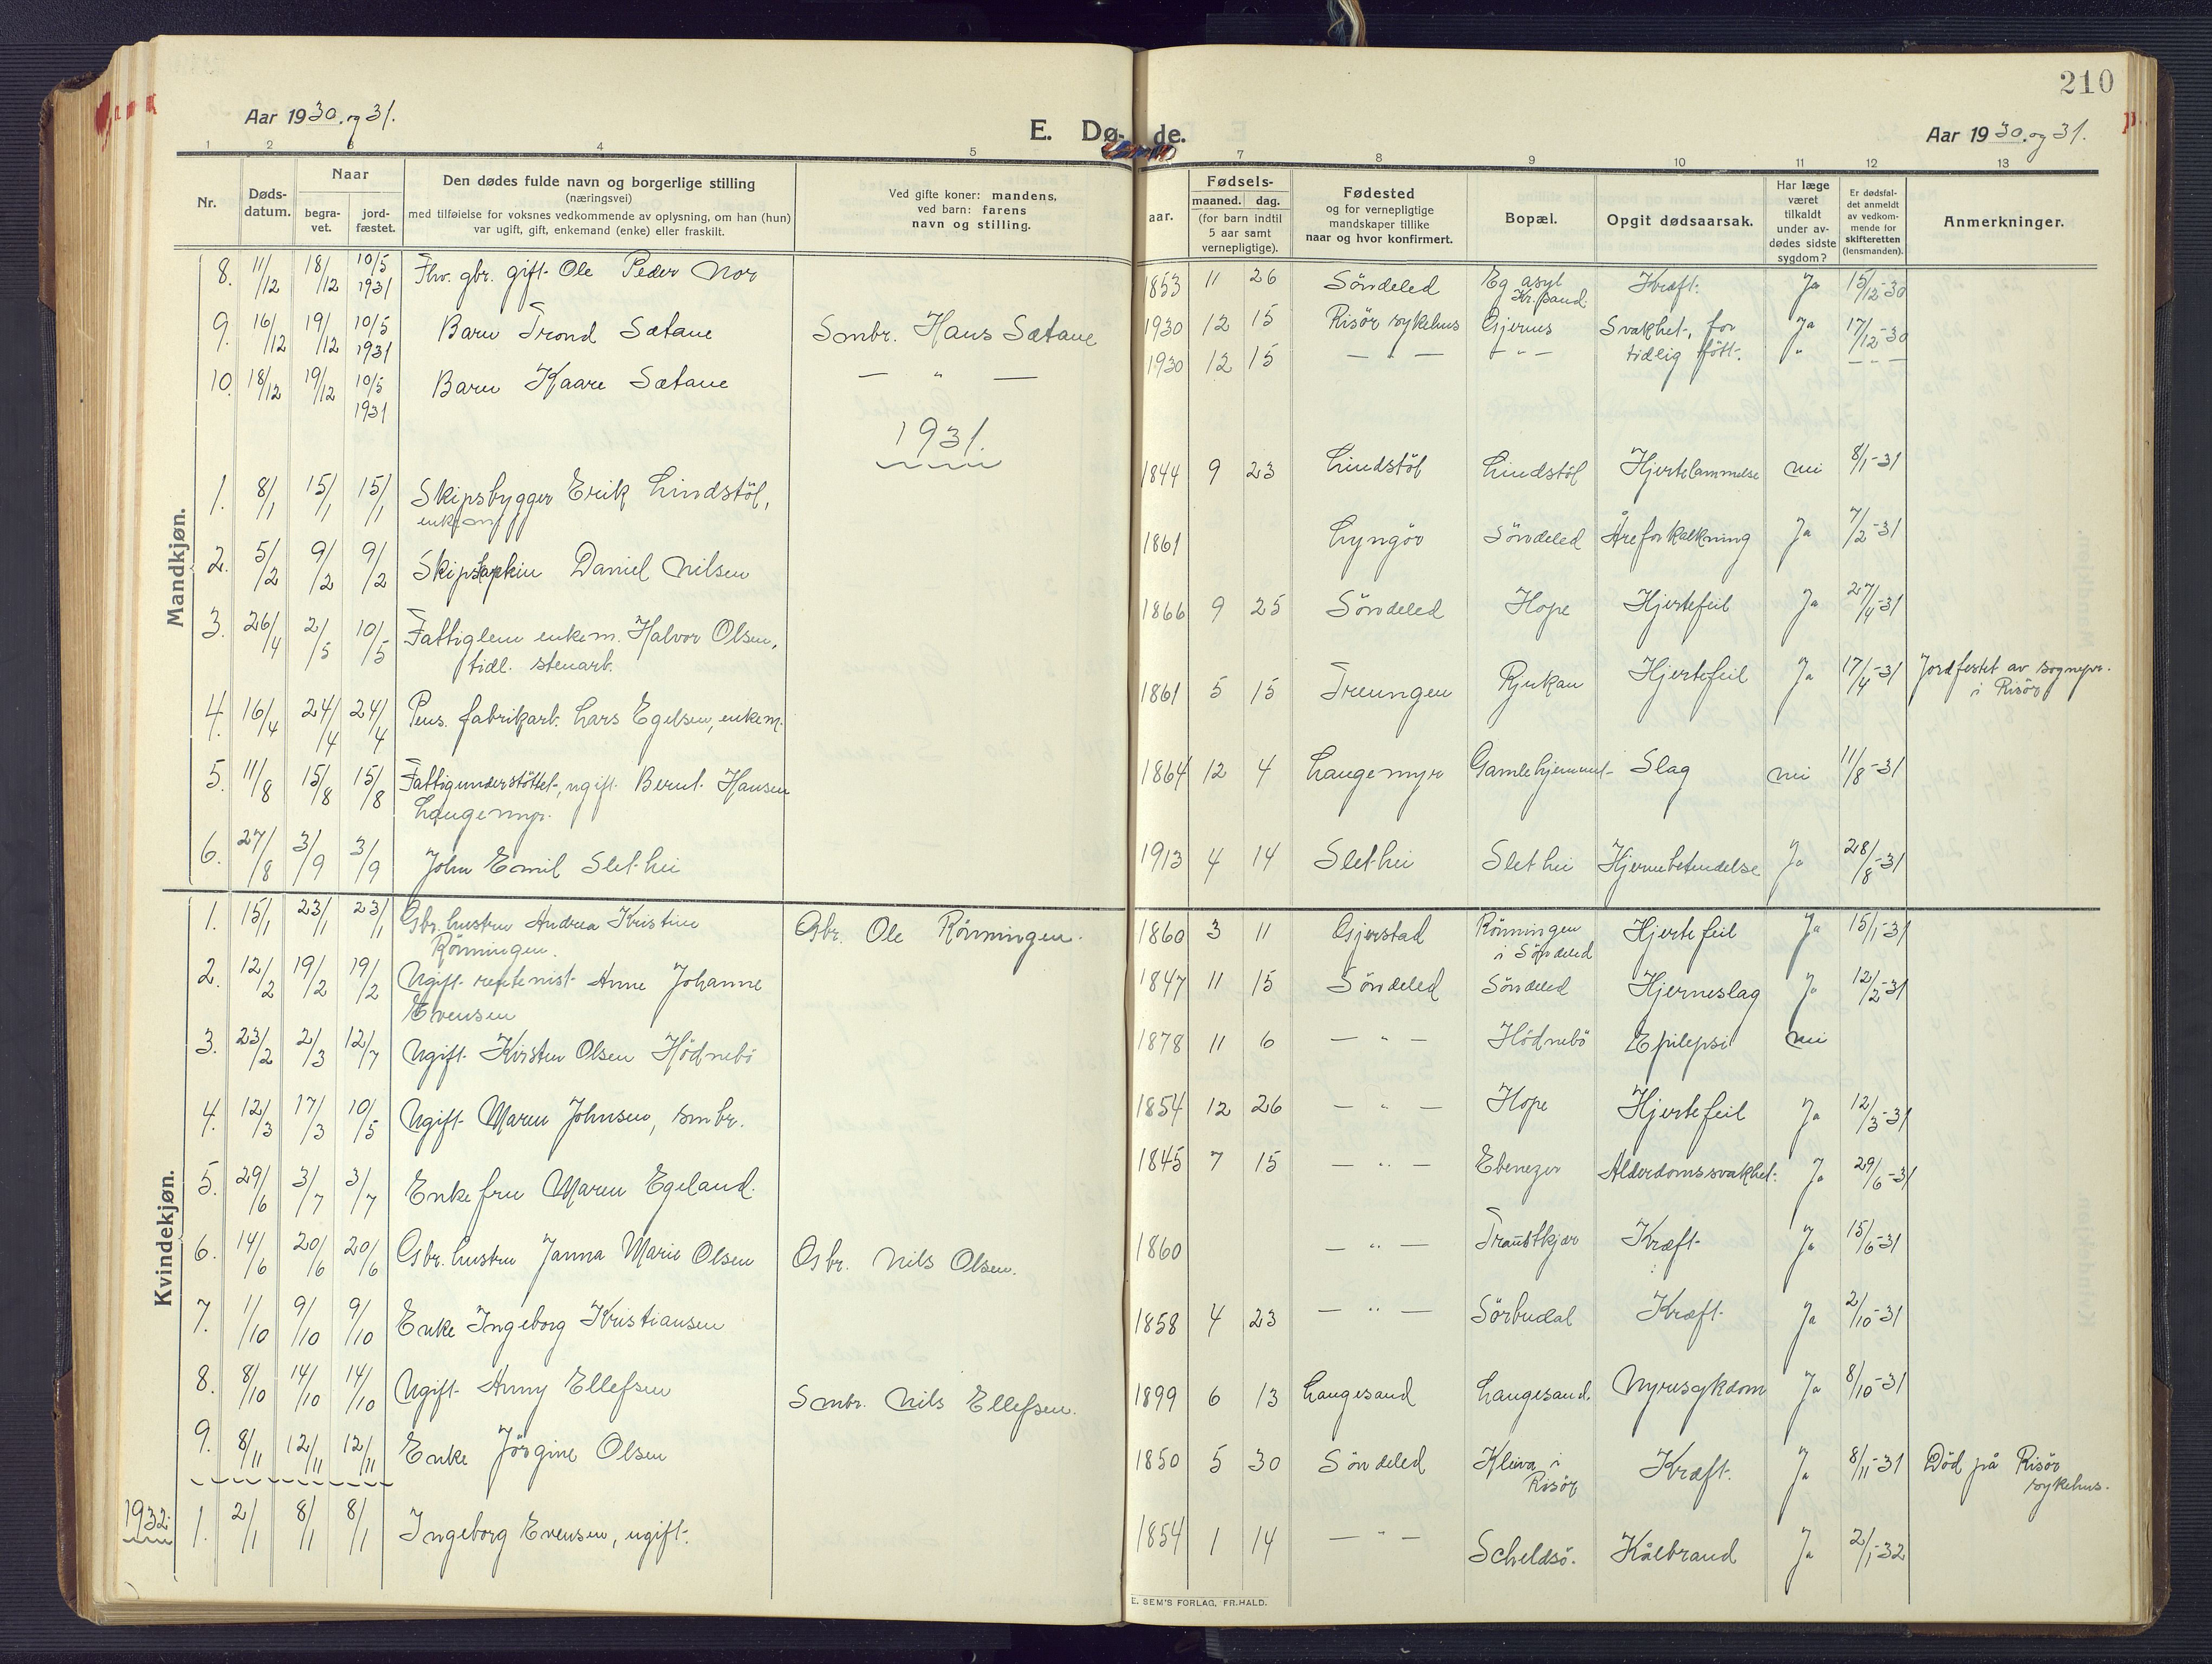 210
Aar 1930. og 31.
E. Dø- de.
Aar 1930. og 31.
1 2 3 4 5 7 8 9 10 11 12 13
Nr.
Døds-datum.
Naar
begra-vet.
jord-fæstet.
Den dødes fulde navn og borgerlige stilling
(næringsvei)
med tilføielse for voksnes vedkommende av oplysning, om han (hun)
var ugift, gift, enkemand (enke) eller fraskilt.
Ved gifte koner: mandens,
ved barn: farens
navn og stilling.
aar.
Fødsels-
maaned. dag.
(for barn indtil
5 aar samt
vernepligtige).
Fødested
og for vernepligtige
mandskaper tillike
naar og hvor konfirmert.
Bopæl.
Opgit dødsaarsak.
Har læge
været
tilkaldt
under av-
dødes sidste
sygdom?
Er dødsfal-
det anmeldt
av vedkom-
mende for
skifteretten
(lensmanden).
Anmerkninger.
Mandkjøn.
8. 11/12 18/12 10/5 1931 Fhv. gbr. gift Ole Peder Nor 1853 11 26 Söndeled Eg asyl Kr.sand Kræft. Ja 15/12-30
9. 16/12 19/12 10/5 1931 Barn Trond Sætane Smbr. Hans Sætane 1930 12 15 Risör sykehus Gjernes Svakhet, for Ja 17/12-30
10. 18/12 19/12 10/5 1931 Barn Kaare Sætane — " — 1930 12 15 — " — — " — tidlig född. " — — —
1931.
1. 8/1 15/1 15/1 Skipsbygger Erik Lindstöl, 1844 9 23 Lindstöl Lindstöl Hjertelammelse nei 8/1-31
enkem.
2. 5/2 9/2 9/2 Skipskaptein Daniel Nilsen 1861 Lyngör Söndeled Åreforkalkning Ja 7/2-31
3. 26/4 2/5 10/5 Fattiglem enkem. Halvor Olsen, 1866 9 25 Söndeled Hope Hjertefeil Ja 27/4-31
tidl. stenarb.
4. 16/4 24/4 24/4 Pens. fabrikarb. Lars Egelsen, enkem. 1861 5 15 Treungen Rjukan Hjertefeil Ja 17/4-31 Jordfestet av sognepr.
i Risör
5. 11/8 15/8 15/8 Fattigunderstöttet, ugift Bernt Hansen 1864 12 4 Langemyr Gamlehjemmet Slag nei 11/8-31
Langemyr.
6. 27/8 3/9 3/9 John Emil Slethei 1913 4 14 Slethei Slethei Hjernebetendelse Ja 28/8-31
Kvindekjøn.
1. 15/1 23/1 23/1 Gbr. hustru Andrea Kristine Gbr. Ole Rönningen. 1860 3 11 Gjerstad Rönningen Hjertefeil Ja 15/1-31
Rönningen. i Söndeled
2. 12/2 19/2 19/2 Ugift rentenist Anne Johanne 1847 11 15 Söndeled Söndeled Hjerneslag Ja 12/2-31
Evensen
3. 23/2 2/3 12/7 Ugift Kirsten Olsen Hödnebö 1878 11 6 — " — Hödnebö Epilepsi nei
4. 12/3 17/3 10/5 Ugift Maren Johnsen, smbr. 1854 12 26 — " — Hope Hjertefeil Ja 12/3-31
5. 29/6 3/7 3/7 Enkefru Maren Egeland. 1845 7 15 — " — Ebenezer Alderdomssvakhet. Ja 29/6-31
6. 14/6 20/6 20/6 Gbr. hustru Janna Marie Olsen Gbr. Nils Olsen. 1860 — " — Kræft Ja 15/6-31
7. 1/10 9/10 9/10 Enke Ingeborg Kristiansen 1858 4 23 — " — Sörbudal Kræft Ja 2/10-31
8. 8/10 14/10 14/10 Ugift Anny Ellefsen Smbr. Nils Ellefsen. 1899 6 13 Langesand Langesand. Nyresykdom Ja 8/10-31
9. 8/11 12/11 12/11 Enke Jörgine Olsen 1850 5 30 Söndeled Kleiva i Kræft. Ja 8/11-31 Död på Risör
Risör sykehus.
1932. 1. 2/1 8/1 8/1 Ingeborg Evensen, ugift. 1854 1 14 — " — Scheldsö. Kålbrand Ja 2/1-32
E. SEM'S FORLAG, FR.HALD.